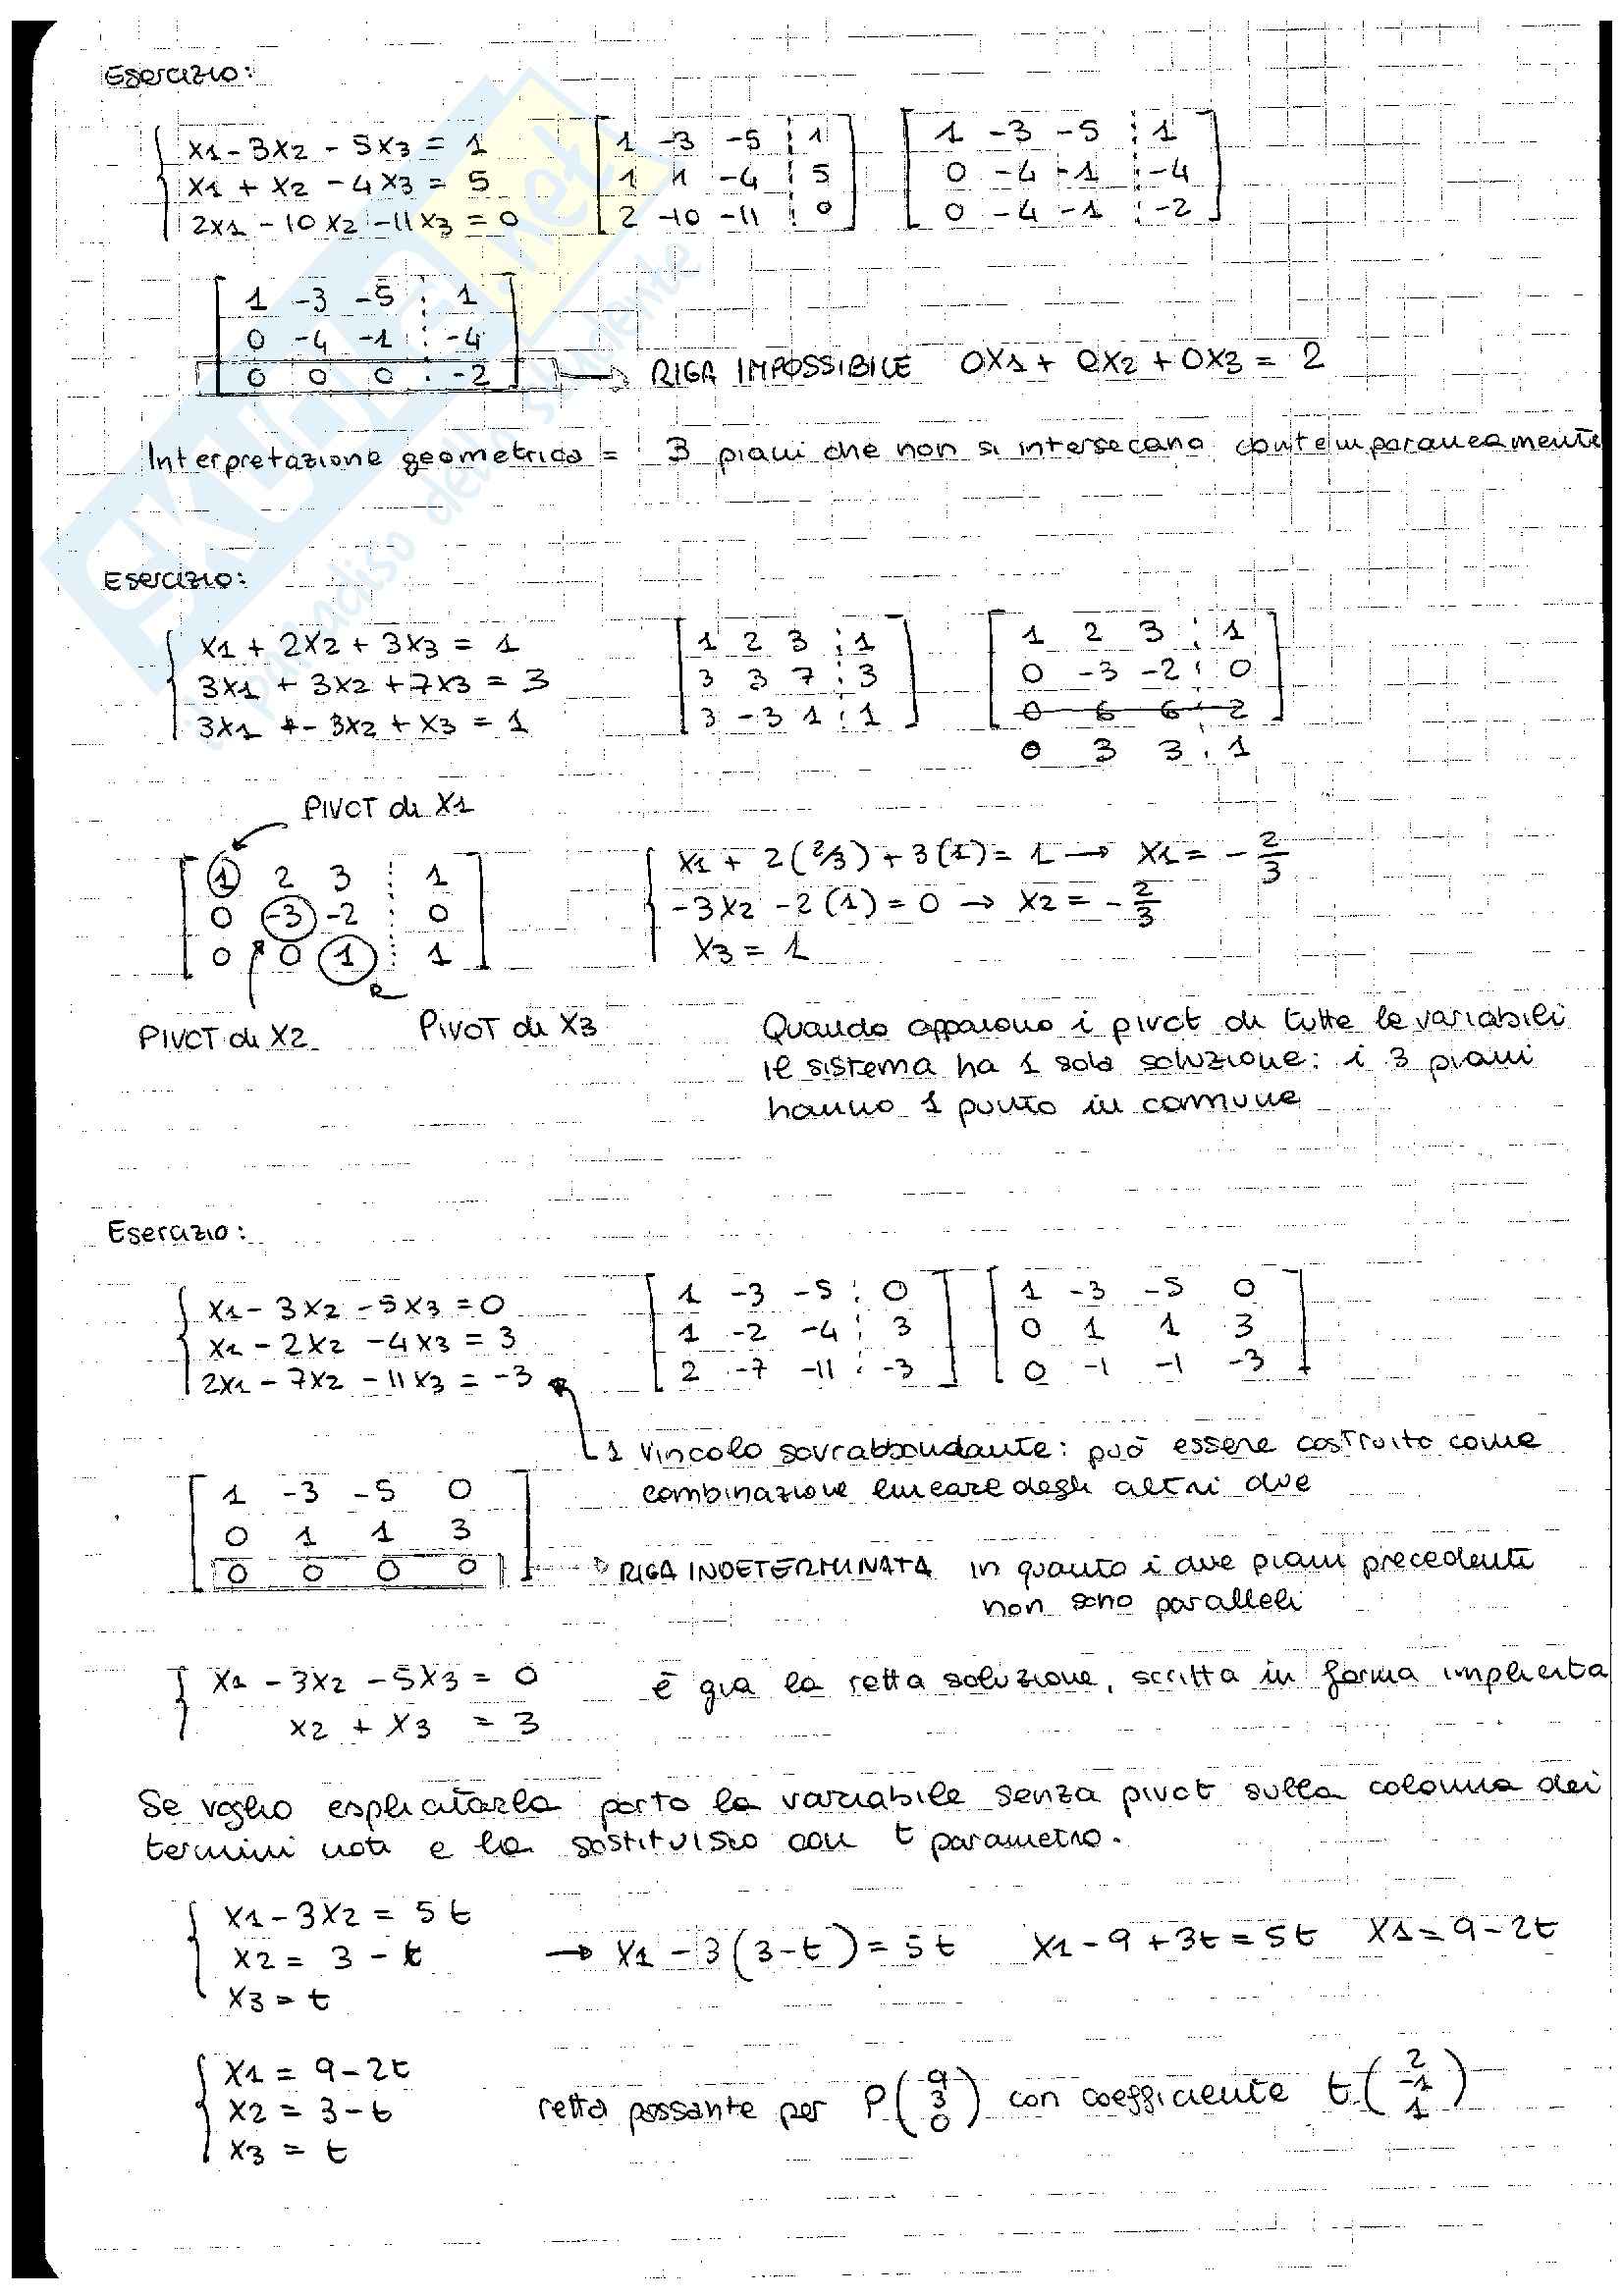 Esercizio:
x1 - 3x2 - 5x3 = 1
x1 + x2 - 4x3 = 5
2x1 - 10x2 - 11x3 = 0
1 -3 -5 1
1 1 -4 5
2 -10 -11 0
1 -3 -5 1
0 -4 -1 -4
0 -4 -1 -2
1 -3 -5 1
0 -4 -1 -4
0 0 0 -2
RIGA IMPOSSIBILE 0x1 + 0x2 + 0x3 = 2
Interpretazione geometrica = 3 piani che non si intersecano contemporaneamente
Esercizio:
x1 + 2x2 + 3x3 = 1
3x1 + 3x2 + 7x3 = 3
3x1 - 3x2 + x3 = 1
1 2 3 1
3 3 7 3
3 -3 1 1
1 2 3 1
0 -3 -2 0
0 6 6 2
0 3 3 1
PIVOT di X1
1 2 3 1
0 -3 -2 0
0 0 1 1
PIVOT di X2
PIVOT di X3
x1 + 2(2/3) + 3(1) = 1 → x1 = -2/3
-3x2 - 2(1) = 0 → x2 = -2/3
x3 = 1
Quando appaiono i pivot di tutte le variabili
il sistema ha 1 sola soluzione: i 3 piani
hanno 1 punto in comune
Esercizio:
x1 - 3x2 - 5x3 = 0
x1 - 2x2 - 4x3 = 3
2x1 - 7x2 - 11x3 = -3
1 -3 -5 0
1 -2 -4 3
2 -7 -11 -3
1 -3 -5 0
0 1 1 3
0 -1 -1 -3
1 vincolo sovrabbondante: può essere costruito come
combinazione lineare degli altri due
1 -3 -5 0
0 1 1 3
0 0 0 0
RIGA INDETERMINATA in quanto i due piani precedenti
non sono paralleli
x1 - 3x2 - 5x3 = 0
x2 + x3 = 3
è già la retta soluzione, scritta in forma implicita
Se voglio esplicitarla porto la variabile senza pivot sulla colonna dei
termini noti e la sostituisco con t parametro.
x1 - 3x2 = 5t
x2 = 3 - t
x3 = t
→ x1 - 3(3-t) = 5t x1 - 9 + 3t = 5t x1 = 9 - 2t
x1 = 9 - 2t
x2 = 3 - t
x3 = t
retta passante per P(9 3 0) con coefficiente t(2 -1 1)